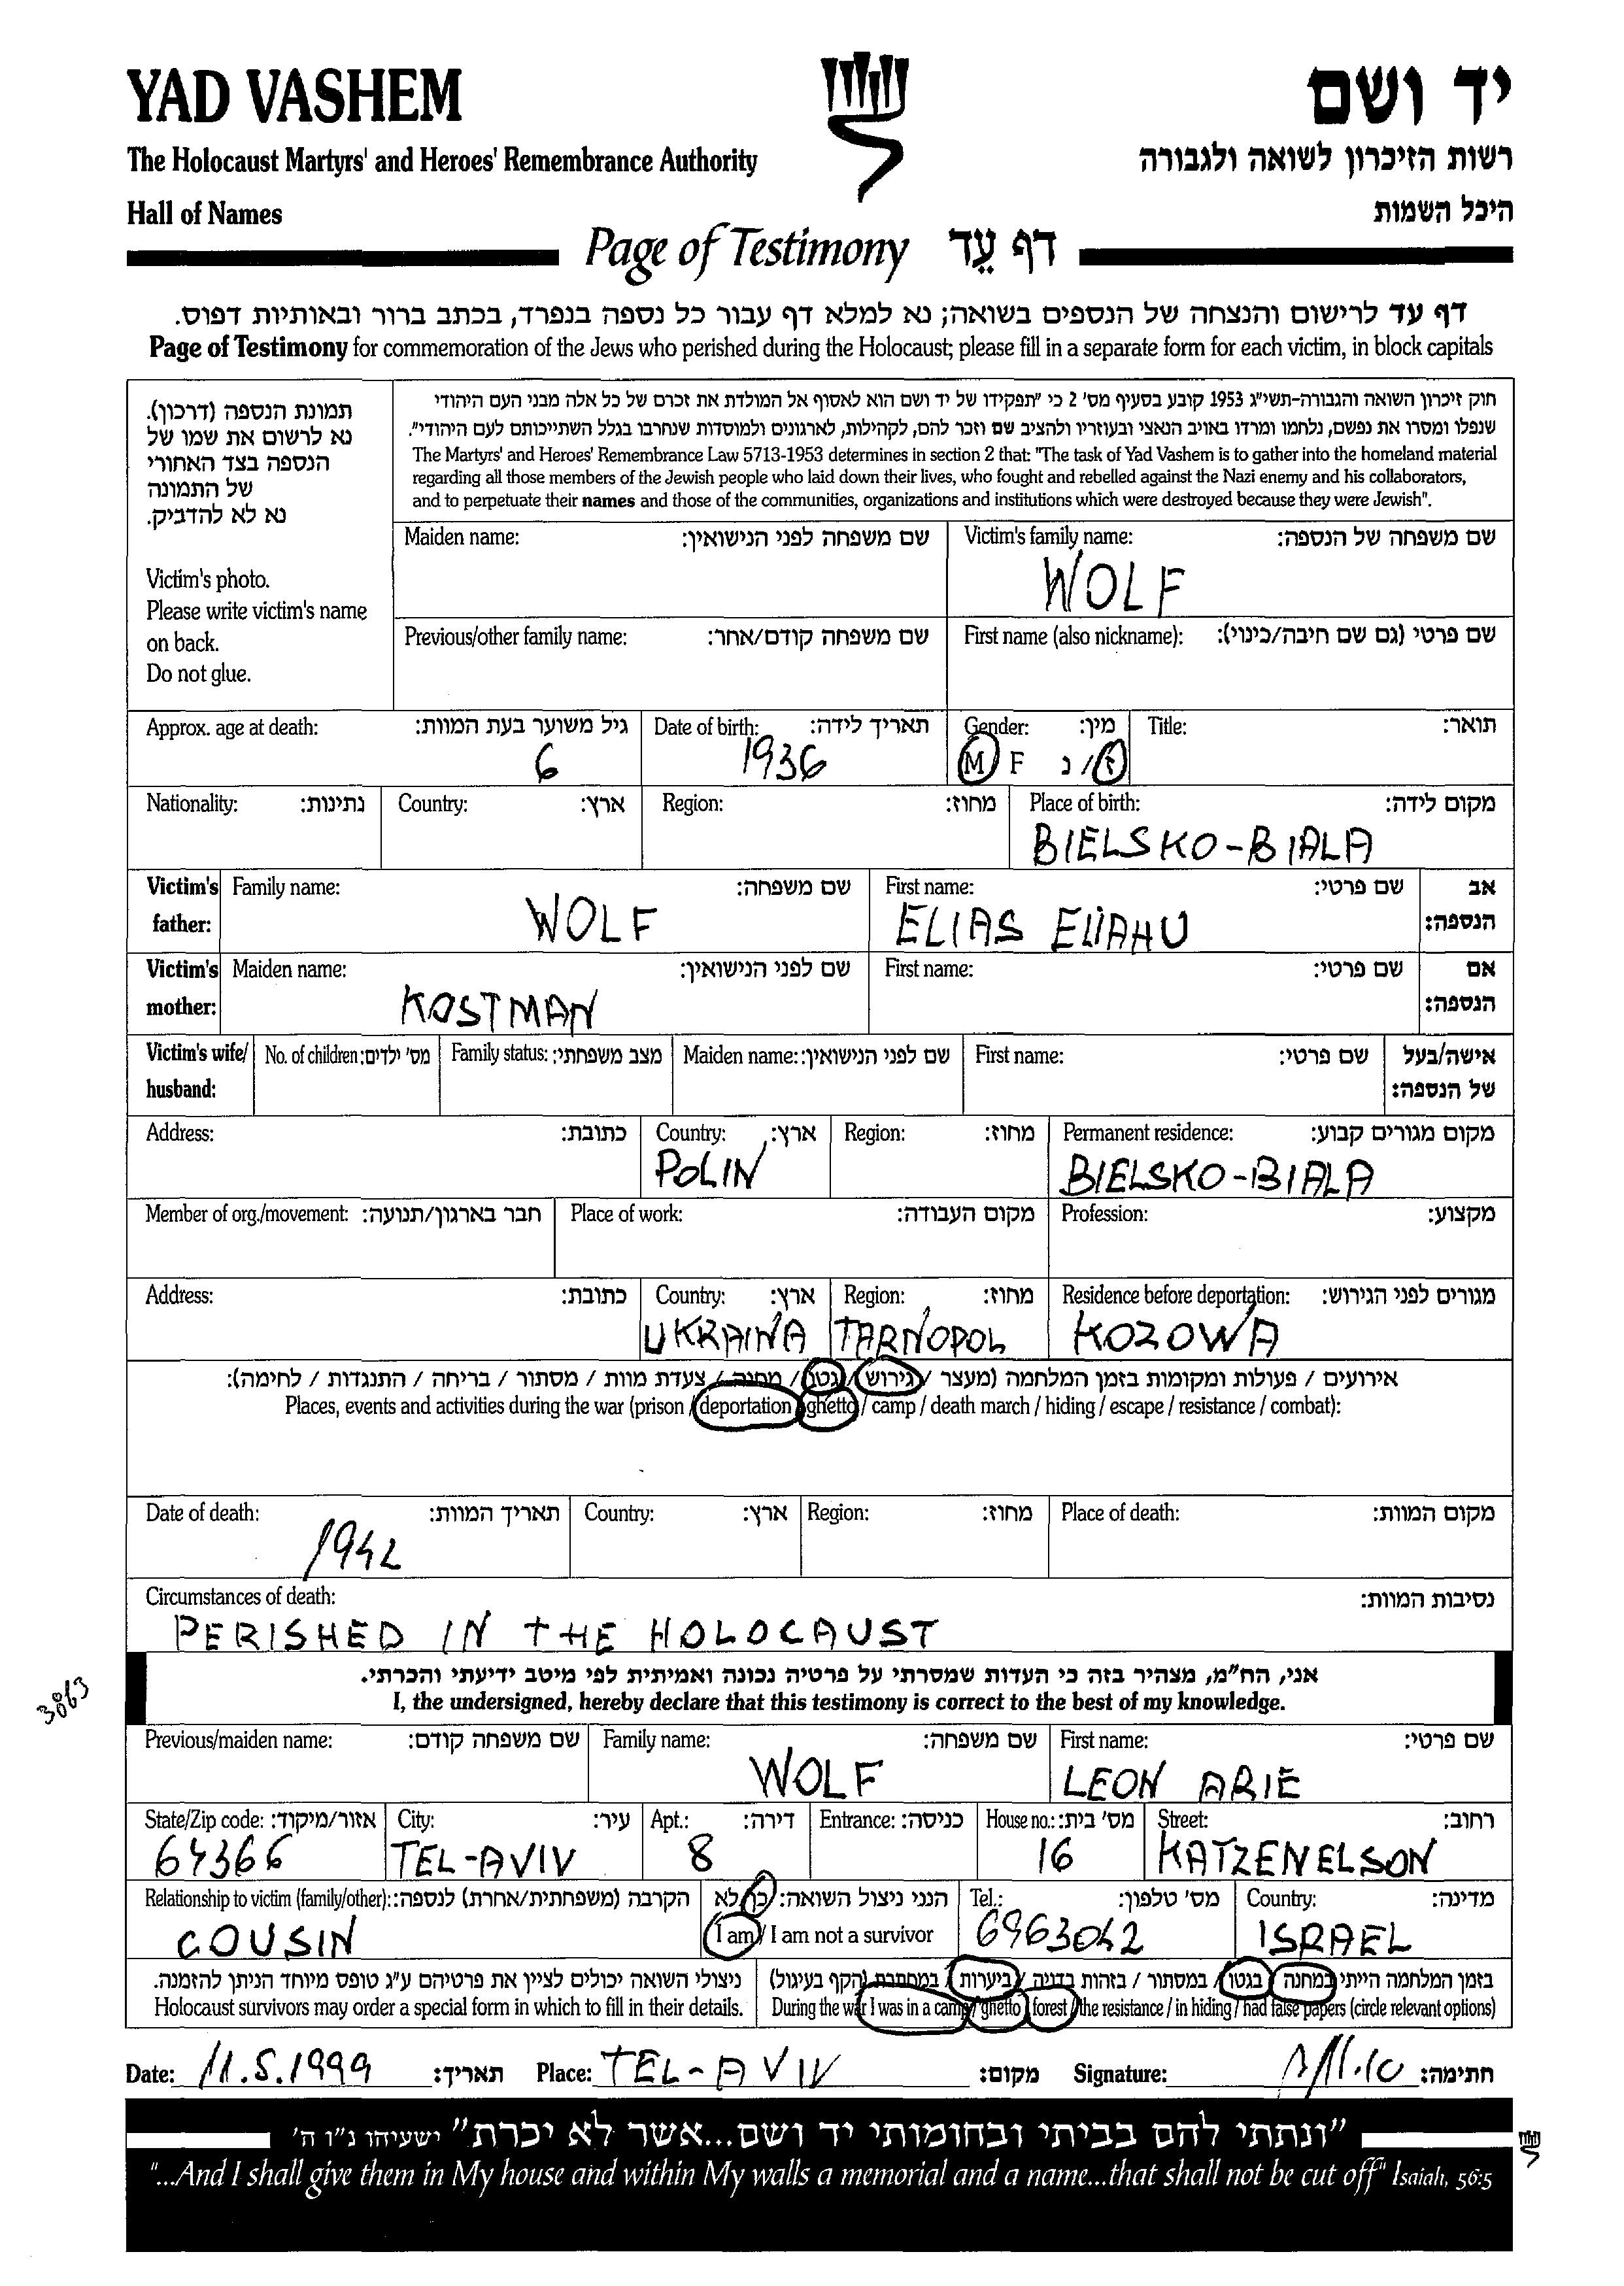 YAD VASHEM
יד ושם
The Holocaust Martyrs' and Heroes' Remembrance Authority
רשות הזיכרון לשואה ולגבורה
Hall of Names
היכל השמות
Page of Testimony דף עֵד
דף עד לרישום והנצחה של הנספים בשואה; נא למלא דף עבור כל נספה בנפרד, בכתב ברור ובאותיות דפוס.
Page of Testimony for commemoration of the Jews who perished during the Holocaust; please fill in a separate form for each victim, in block capitals
תמונת הנספה (דרכון).
נא לרשום את שמו של
הנספה בצד האחורי
של התמונה
נא לא להדביק.
Victim's photo.
Please write victim's name
on back.
Do not glue.
חוק זיכרון השואה והגבורה-תשי"ג 1953 קובע בסעיף מס' 2 כי "תפקידו של יד ושם הוא לאסוף אל המולדת את זכרם של כל אלה מבני העם היהודי
שנפלו ומסרו את נפשם, נלחמו ומרדו באויב הנאצי ובעוזריו ולהציב שם וזכר להם, לקהילות, לארגונים ולמוסדות שנחרבו בגלל השתייכותם לעם היהודי".
The Martyrs' and Heroes' Remembrance Law 5713-1953 determines in section 2 that: "The task of Yad Vashem is to gather into the homeland material
regarding all those members of the Jewish people who laid down their lives, who fought and rebelled against the Nazi enemy and his collaborators,
and to perpetuate their names and those of the communities, organizations and institutions which were destroyed because they were Jewish".
Maiden name: שם משפחה לפני הנישואין:
Victim's family name: שם משפחה של הנספה:
WOLF
Previous/other family name: שם משפחה קודם/אחר:
First name (also nickname): שם פרטי (גם שם חיבה/כינוי):
Approx. age at death: גיל משוער בעת המוות:
6
Date of birth: תאריך לידה:
1936
Gender: מין:
M F ז / נ
Title: תואר:
Nationality: נתינות:
Country: ארץ:
Region: מחוז:
Place of birth: מקום לידה:
BIELSKO-BIALA
Victim's father:
Family name: שם משפחה:
WOLF
First name: שם פרטי:
ELIAS ELIAHU
אב הנספה:
Victim's mother:
Maiden name: שם לפני הנישואין:
KOSTMAN
First name: שם פרטי:
אם הנספה:
Victim's wife/ husband:
No. of children: מס' ילדים:
Family status: מצב משפחתי:
Maiden name: שם לפני הנישואין:
First name: שם פרטי:
אישה/בעל של הנספה:
Address: כתובת:
Country: ארץ:
POLIN
Region: מחוז:
Permanent residence: מקום מגורים קבוע:
BIELSKO-BIALA
Member of org./movement: חבר בארגון/תנועה:
Place of work: מקום העבודה:
Profession: מקצוע:
Address: כתובת:
Country: ארץ:
UKRAINA
Region: מחוז:
TARNOPOL
Residence before deportation: מגורים לפני הגירוש:
KOZOWA
אירועים / פעולות ומקומות בזמן המלחמה (מעצר / גירוש / גטו / מחנה / צעדת מוות / מסתור / בריחה / התנגדות / לחימה):
Places, events and activities during the war (prison / deportation / ghetto / camp / death march / hiding / escape / resistance / combat):
Date of death: תאריך המוות:
1942
Country: ארץ:
Region: מחוז:
Place of death: מקום המוות:
Circumstances of death: נסיבות המוות:
PERISHED IN THE HOLOCAUST
3863
אני, הח"מ, מצהיר בזה כי העדות שמסרתי על פרטיה נכונה ואמיתית לפי מיטב ידיעתי והכרתי.
I, the undersigned, hereby declare that this testimony is correct to the best of my knowledge.
Previous/maiden name: שם משפחה קודם:
Family name: שם משפחה:
WOLF
First name: שם פרטי:
LEON ARIE
State/Zip code: אזור/מיקוד:
64366
City: עיר:
TEL-AVIV
Apt.: דירה:
8
Entrance: כניסה:
House no.: מס' בית:
16
Street: רחוב:
KATZENELSON
Relationship to victim (family/other): הקרבה (משפחתית/אחרת) לנספה:
COUSIN
הנני ניצול השואה: כן / לא
I am / I am not a survivor
Tel.: מס' טלפון:
6963042
Country: מדינה:
ISRAEL
ניצולי השואה יכולים לציין את פרטיהם ע"ג טופס מיוחד הניתן להזמנה.
Holocaust survivors may order a special form in which to fill in their details.
בזמן המלחמה הייתי במחנה / בגטו / במסתור / בזהות בדויה / ביערות / במחתרת (הקף בעיגול)
During the war I was in a camp / ghetto / forest / the resistance / in hiding / had false papers (circle relevant options)
Date: 11.5.1999 תאריך:
Place: TEL-AVIV מקום:
Signature: חתימה:
"ונתתי להם בביתי ובחומותי יד ושם...אשר לא יכרת" ישעיהו נ"ו ה'
"...And I shall give them in My house and within My walls a memorial and a name...that shall not be cut off" Isaiah, 56:5